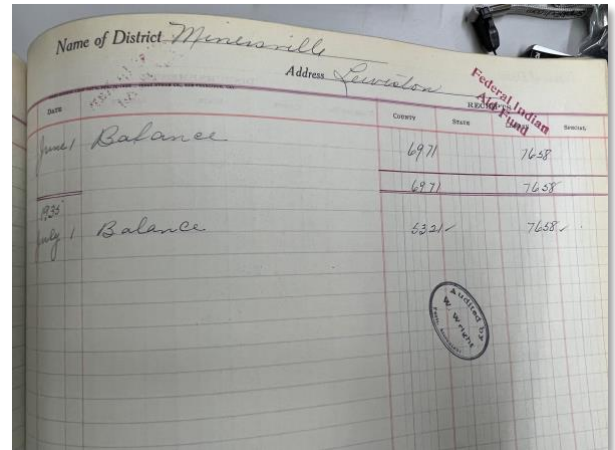 Name of District Minersville
Address Lewiston
Federal Indian
Aid Fund
DATE
COUNTY STATE SPECIAL
June 1 Balance 6971 7658
6971 7658
1935
July 1 Balance 5321 ✓ 7658 ✓
Audited by
W. Wright